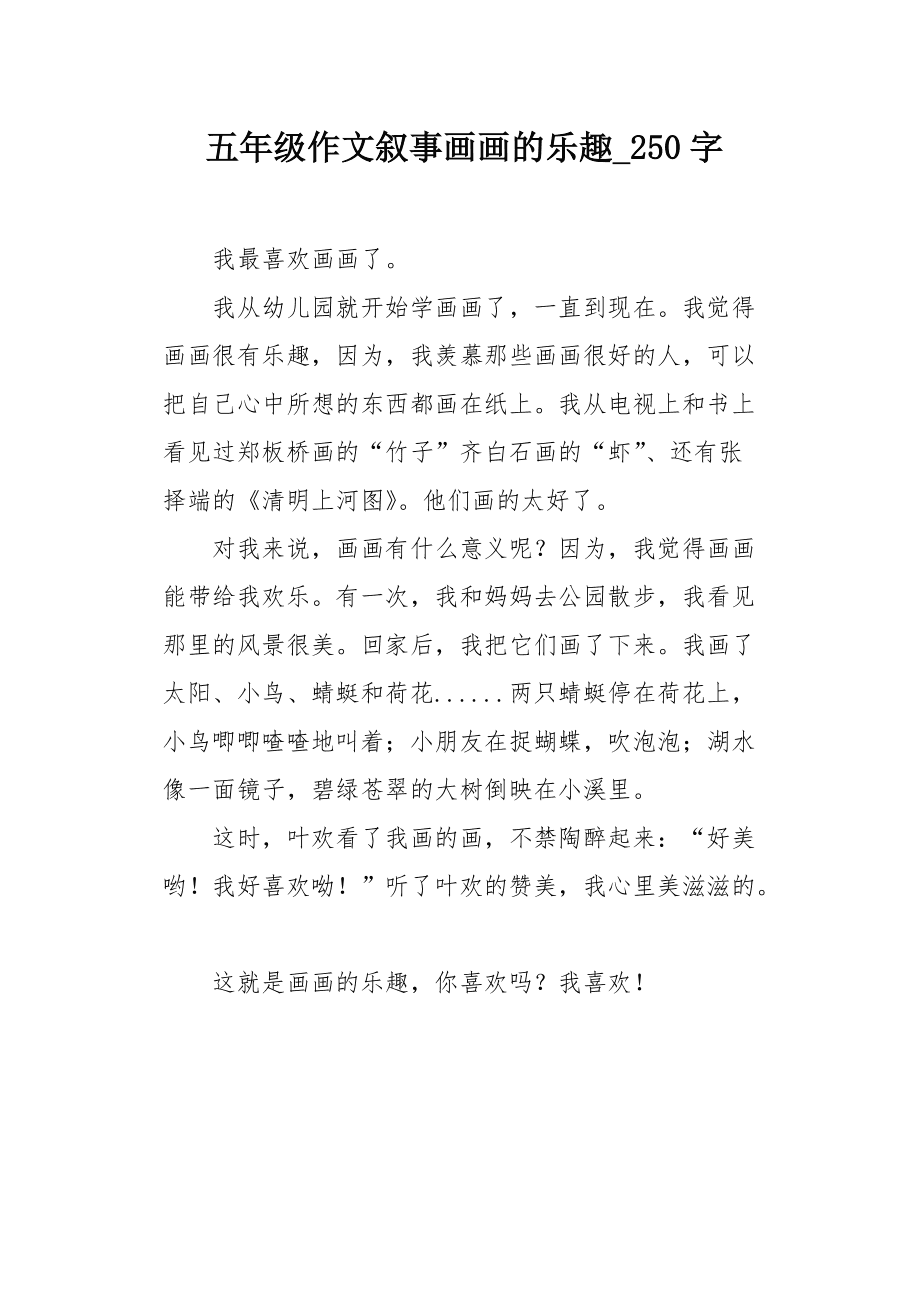 五年级作文叙事画画的乐趣_250字
我最喜欢画画了。
我从幼儿园就开始学画画了，一直到现在。我觉得
画画很有乐趣，因为，我羡慕那些画画很好的人，可以
把自己心中所想的东西都画在纸上。我从电视上和书上
看见过郑板桥画的“竹子”齐白石画的“虾”、还有张
择端的《清明上河图》。他们画的太好了。
对我来说，画画有什么意义呢？因为，我觉得画画
能带给我欢乐。有一次，我和妈妈去公园散步，我看见
那里的风景很美。回家后，我把它们画了下来。我画了
太阳、小鸟、蜻蜓和荷花......两只蜻蜓停在荷花上，
小鸟唧唧喳喳地叫着；小朋友在捉蝴蝶，吹泡泡；湖水
像一面镜子，碧绿苍翠的大树倒映在小溪里。
这时，叶欢看了我画的画，不禁陶醉起来：“好美
哟！我好喜欢呦！”听了叶欢的赞美，我心里美滋滋的。
这就是画画的乐趣，你喜欢吗？我喜欢！